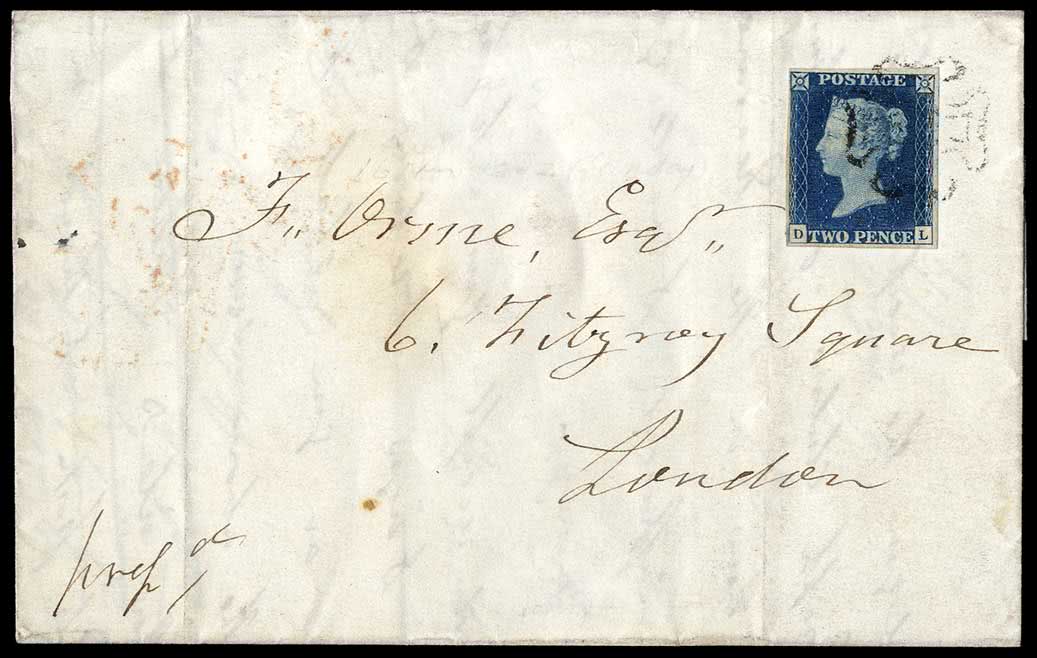 POSTAGE
TWO PENCE
D L
F,, Orme, Esqr,,
6. Fitzroy Square
London
prepd